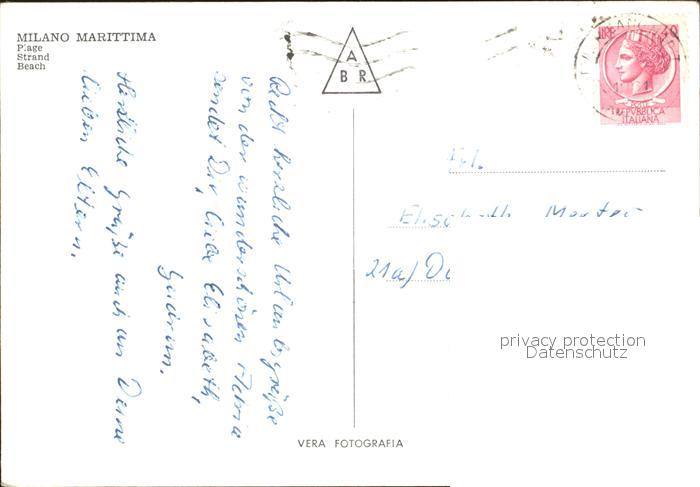 MILANO MARITTIMA
Plage
Strand
Beach
A
B R
LIRE
POSTE
REPVBBLICA
ITALIANA
Recht herzliche Urlaubsgrüße
von der wunderschönen Adria
sendet Dir, liebe Elisabeth,
Gudrun.
Herzliche Grüße auch an Deine
lieben Eltern.
Frl.
Elisabeth
21a)
privacy protection
Datenschutz
VERA FOTOGRAFIA